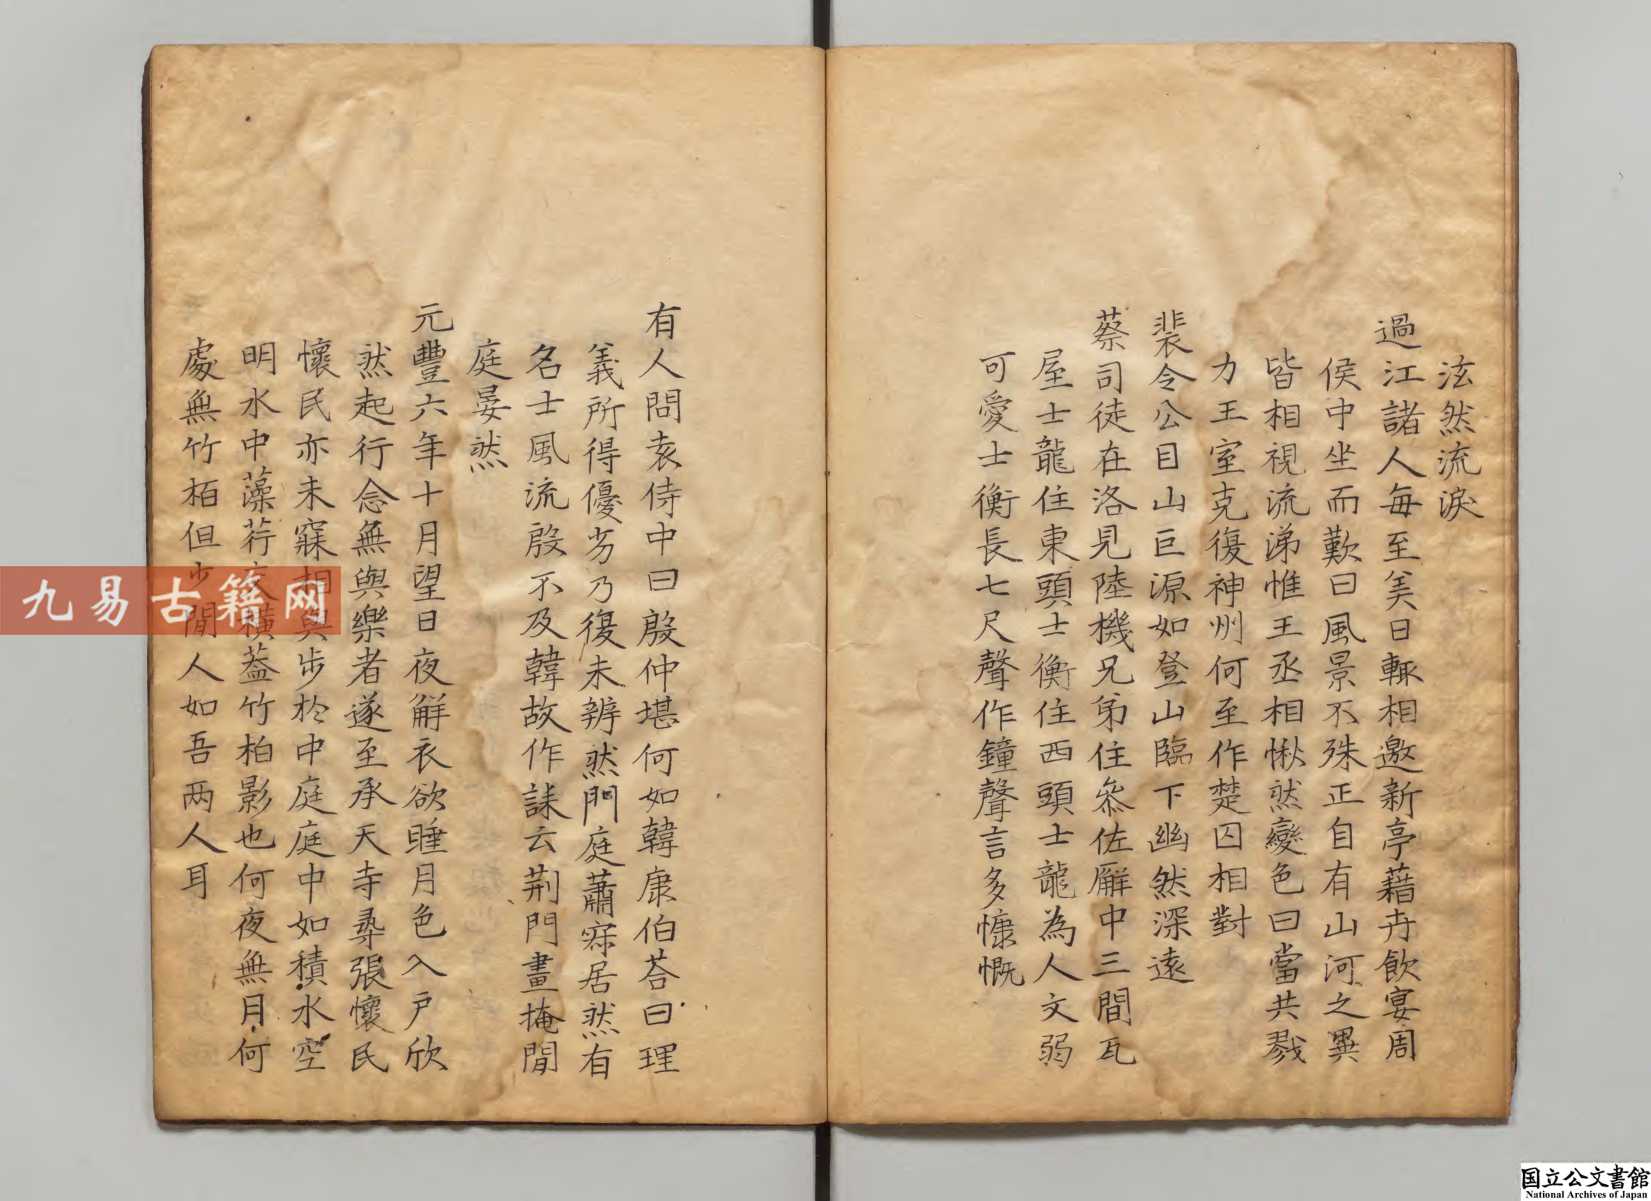 泫然流淚
過江諸人每至美日輒相邀新亭藉卉飲宴周
侯中坐而歎曰風景不殊正自有山河之異
皆相視流涕惟王丞相愀然變色曰當共戮
力王室克復神州何至作楚囚相對
裴令公目山巨源如登山臨下幽然深遠
蔡司徒在洛見陸機兄弟住叅佐廨中三間瓦
屋士龍住東頭士衡住西頭士龍為人文弱
可愛士衡長七尺聲作鐘聲言多慷慨
有人問袁侍中曰殷仲堪何如韓康伯荅曰理
義所得優劣乃復未辨然門庭蕭寂居然有
名士風流殷不及韓故作誄云荆門晝掩閒
庭晏然
元豐六年十月望日夜解衣欲睡月色入戶欣
然起行念無與樂者遂至承天寺尋張懷民
懷民亦未寐相與步於中庭庭中如積水空
明水中藻荇交橫蓋竹柏影也何夜無月何
處無竹栢但少閒人如吾两人耳
九易古籍网
国立公文書館
National Archives of Japan